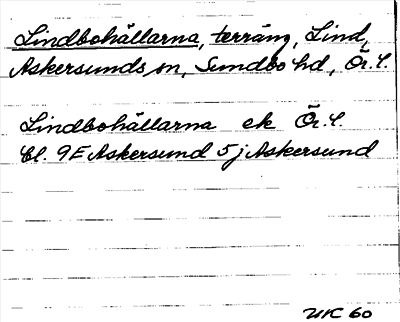 Lindbohällarna, terräng, Lind,
Askersunds sn, Sundbo hd, Ör.l.
Lindbohällarna ek Ör.l.
bl. 9E Askersund 5j Askersund
UK 60